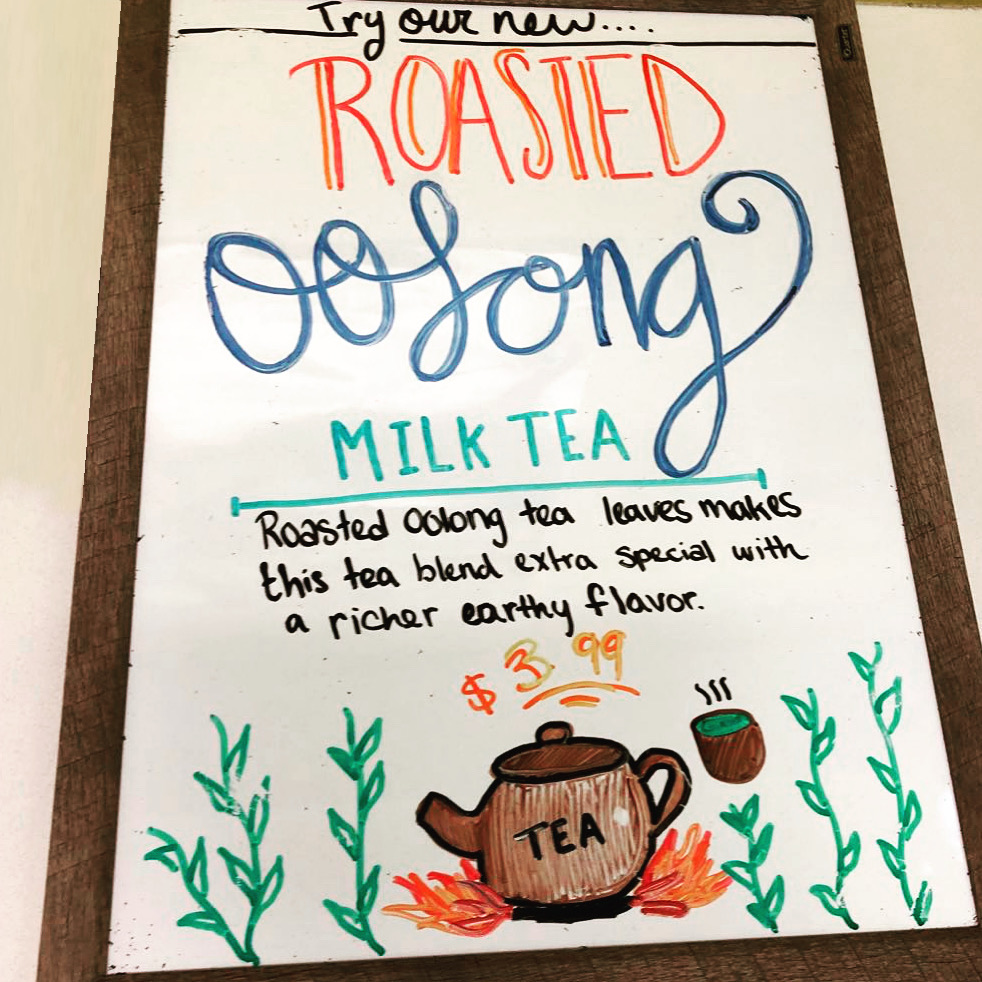 Try our new....
ROASTED
Oolong
MILK TEA
Roasted Oolong tea leaves makes
this tea blend extra special with
a richer earthy flavor.
$3.99
TEA